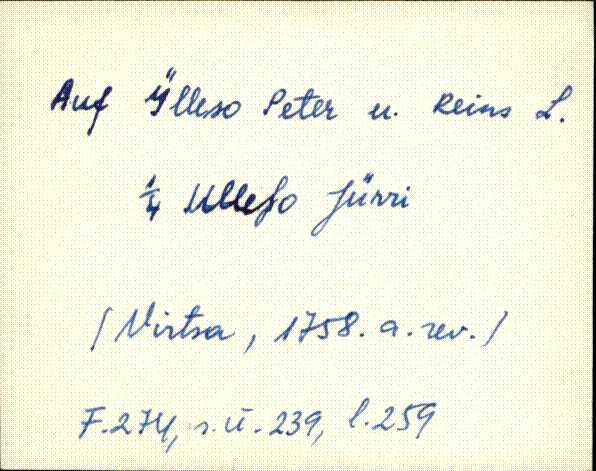 Auf Ÿlleso Peter u. Reins L.
1/4 Ullefo Jürri
/ Virtsa, 1758. a. rev. /
F. 274, s. ü. 239, l. 259